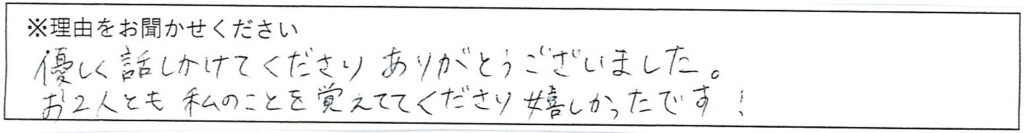 ※理由をお聞かせください
優しく話しかけてくださり ありがとうございました。
お2人とも 私のことを覚えててくださり 嬉しかったです！